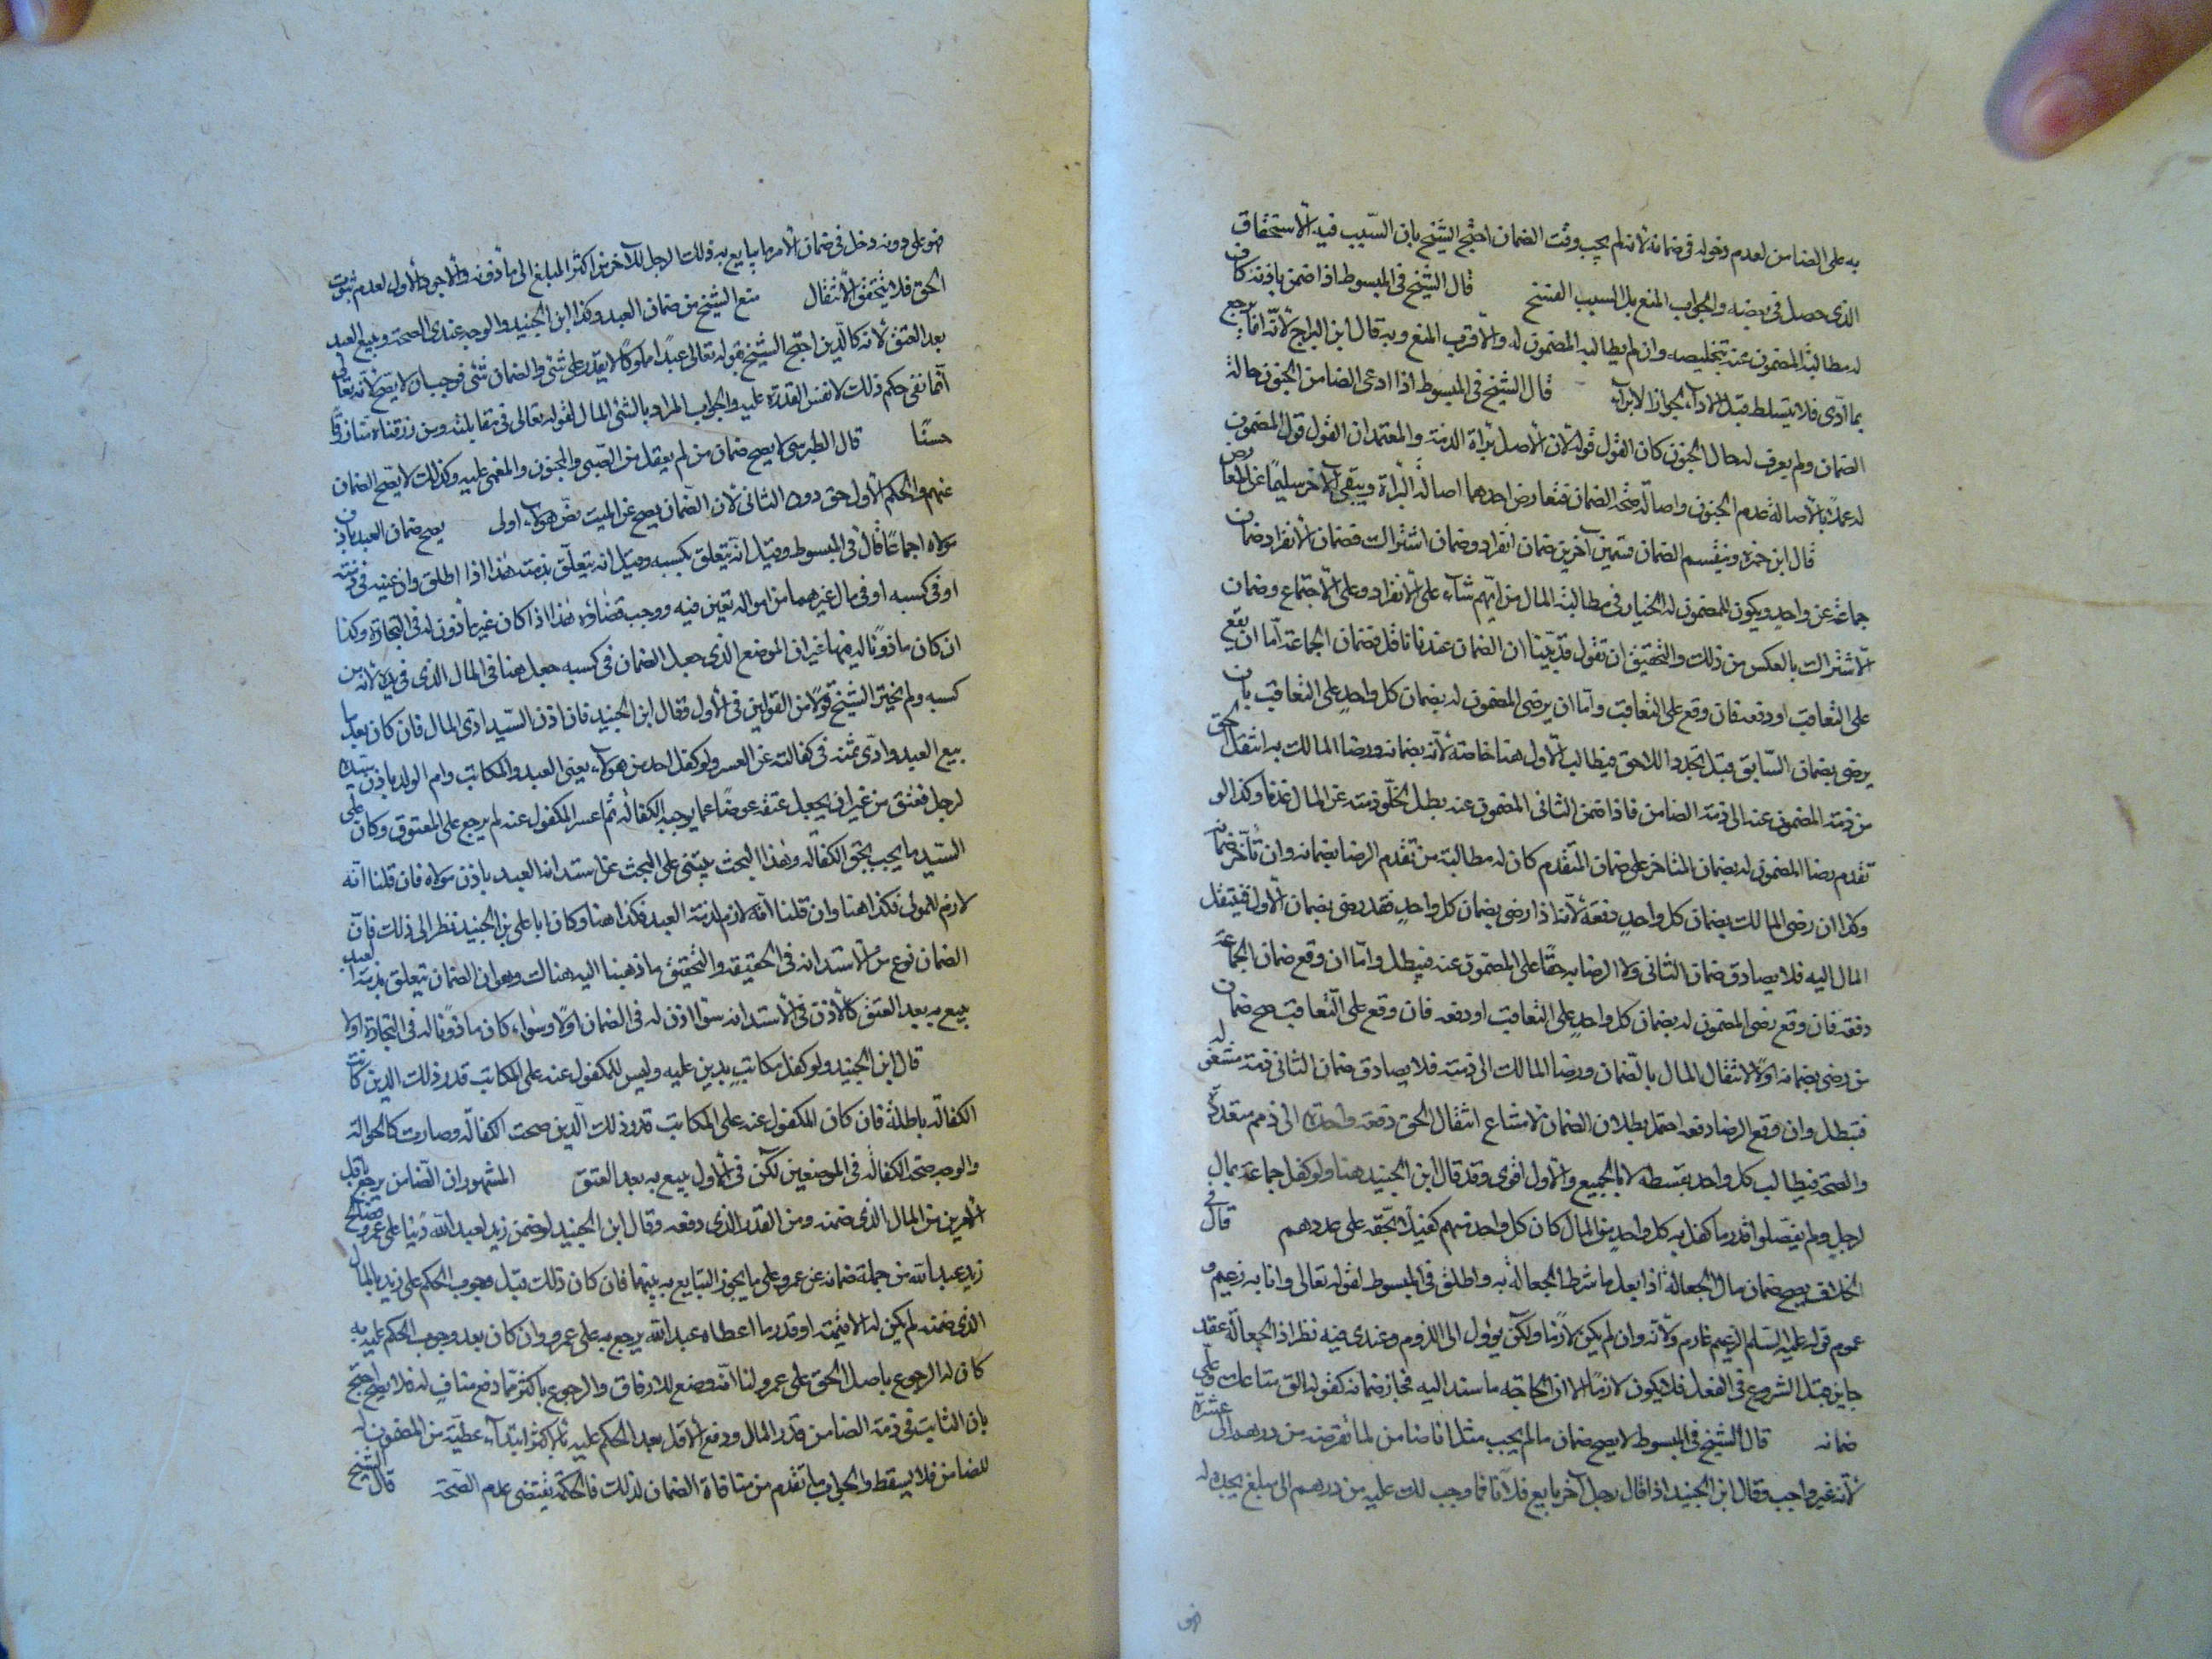 به على الضامن لعدم دخوله فى ضمانه لانه لم يجب وقت الضمان احتج الشيخ بان السبب فيه الاستحقاق
الذى حصل فى بعضه والجواب المنع بل السبب الفسخ قال الشيخ فى المبسوط اذا ضمن باذنه كان
له مطالبة المضمون عنه بتخليصه وان لم يطالبه المضمون له والاقرب المنع وبه قال ابن البراج لانه انما يرجع
بما ادى فلا يتسلط قبل الاداء لجواز الابراء قال الشيخ فى المبسوط اذا ادعى الضامن الجنون حالة
الضمان ولم يعرف له حال الجنون كان القول قوله لان الاصل براة الذمة والمعتمد ان القول قول المضمون
له عملا باصالة عدم الجنون واصالة صحة الضمان فتعارض احدهما اصالة البراة ويبقى الاخر سليما عن المعارض
قال ابن حمزه وينقسم الضمان قسمين آخرين ضمان انفراد وضمان اشتراك فضمان الانفراد ضمان
جماعة عن واحد ويكون للمضمون له الخيار فى مطالبة المال من ايهم شاء على الانفراد وعلى الاجتماع وضمان
الاشتراك بالعكس من ذلك والتحقيق ان نقول قد بينا ان الضمان عندنا ناقل فضمان الجماعة اما ان يقع
على التعاقب او دفعه فان وقع على التعاقب واما ان يرضى المضمون له بضمان كل واحد على التعاقب بان
يرضى بضمان السابق قبل تجدد اللاحق فيطالب الاول هنا خاصة لانه بضمانه ورضا المالك به انتقل الحق
من ذمة المضمون عنه الى ذمة الضامن فاذا ضمن الثانى المضمون عنه بطل لخلو ذمته عن المال عندنا وكذا لو
تقدم رضا المضمون له بضمان المتاخر على ضمان المتقدم كان له مطالبة من تقدم الرضا بضمانه وان تاخر ضمانه
وكذا ان رضى المالك بضمان كل واحد دفعة لانه اذا رضى بضمان كل واحد فقد رضى بضمان الاول فينتقل
المال اليه فلا يصادق ضمان الثانى ولا الرضا به حقا على المضمون عنه فيبطل واما ان وقع ضمان الجماعة
دفعة فان وقع رضى المضمون له بضمان كل واحد على التعاقب او دفعه فان وقع على التعاقب صح ضمان
من رضى بضمانه اولا لانتقال المال بالضمان ورضا المالك الى ذمته فلا يصادق ضمان الثانى ذمة مشغولة
فيبطل وان وقع الرضا دفعه احتمل بطلان الضمان لامتناع انتقال الحق دفعة واحدة الى ذمم متعددة
والصحة فيطالب كل واحد بقسطه لا بالجميع والاول اقوى وقد قال ابن الجنيد هنا ولو كفل جماعة بمال
لرجل ولم يفصلوا قدر ما كفل به كل واحد من المال كان كل واحد منهم كفيلا بحقه على عددهم قال فى
الخلاف يصح ضمان مال الجعالة اذا فعل ما شرط الجعالة به واطلق فى المبسوط لقوله تعالى وانا به زعيم و
عموم قوله عليه السلم الزعيم غارم ولانه وان لم يكن لازما ولكن يؤول الى اللزوم وعندى فيه نظر اذ الجعالة عقد
جايز قبل الشروع فى الفعل فلا يكون لازما الا ان الحاجة ماسة اليه فجاز ضمانه كقوله الق متاعك وعلى
ضمانه قال الشيخ فى المبسوط لا يصح ضمان ما لم يجب مثل انا ضامن لما تقرضه من درهم الى عشرة
لانه غير واجب وقال ابن الجنيد اذا قال رجل آخر بايع فلانا فما وجب لك عليه من درهم الى مبلغ يحده له
فهو
فهو على دونه دخل فى ضمان الامر ما يبايع به ذلك الرجل للآخر من اكثر المبلغ الى ما دونه والاجود الاول لعدم ثبوت
الحق فلا يتحقق الانتقال منع الشيخ من ضمان العبد وكذا ابن الجنيد والوجه عندى الصحة ويبيع العبد
بعد العتق لانه كالدين احتج الشيخ بقوله تعالى عبدا مملوكا لا يقدر على شئ والضمان شئ فوجب ان لا يصح لانه تعالى
انما نفى حكم ذلك لا نفس القدرة عليه والجواب المراد بالشئ المال لقوله تعالى فى مقابلته ومن رزقناه منا رزقا
حسنا قال الطبرسى لا يصح ضمان من لم يعقل من الصبى والمجنون والمغمى عليه وكذلك لا يصح الضمان
عنهم والحكم الاول حق دون الثانى لان الضمان يصح عن الميت فعن هولاء اولى يصح ضمان العبد باذن
مولاه اجماعا قال فى المبسوط وقيل انه يتعلق بكسبه وقيل انه يتعلق بذمته هذا اذا اطلق وان عينه فى ذمته
او فى كسبه او فى مال غيرهما من امواله تعين فيه ووجب قضاؤه هذا اذا كان غير مأذون له فى التجارة وكذا
ان كان ماذونا له فيها غير ان الموضع الذى جعل الضمان فى كسبه جعل هنا فى المال الذى فى يده لانه من
كسبه ولم يختر الشيخ قولا من القولين فى الاول وقال ابن الجنيد فان اذن السيد ادى المال فان كان بعد ما
بيع العبد وادى ثمنه فى كفالته عن العسر ولو كفل احد من هولاء يعنى العبد والمكاتب وام الولد باذن سيده
لرجل فعتق من غير ان يجعل عتقه عوضا عما يوجبه الكفالة ثم اعسر المكفول عنه لم يرجع على المعتوق وكان على
السيد ما يجب بحق الكفالة وهذا البحث يبتنى على البحث عن استدانة العبد باذن مولاه فان قلنا انه
لازم للمولى فكذا هنا وان قلنا انه لازم لذمة العبد فكذا هنا وكان ابا على بن الجنيد نظر الى ذلك فان
الضمان نوع من الاستدانه فى الحقيقه والتحقيق ما ذهبنا اليه هناك وهو ان الضمان يتعلق بذمة العبد
يبيع به بعد العتق كالاذن فى الاستدانه سوا اذن له فى الضمان اولا وسواء كان ماذونا له فى التجارة اولا
قال ابن الجنيد ولو كفل مكاتب بدين عليه وليس للمكفول عنه على المكاتب قدر ذلك الدين كانت
الكفالة باطلة فان كان للمكفول عنه على المكاتب قدر ذلك الدين صحت الكفالة وصارت كالحوالة
والوجه صحة الكفالة فى الموضعين لكن فى الاول يبيع به بعد العتق المشهور ان الضامن يرجع باقل
الامرين من المال الذى ضمنه ومن القدر الذى دفعه وقال ابن الجنيد لو ضمن زيد لعبد الله دينا على عمرو فصالح
زيد عبد الله من جملة ضمانه عن عمرو على ما يجوز التبايع به بينهما فان كان ذلك قبل وجوب الحكم على زيد بالمال
الذى ضمنه لم يكن له الا قيمته او قدر ما اعطاه عبد الله يرجع به على عمرو وان كان بعد وجوب الحكم عليه به
كان له الرجوع باصل الحق على عمرو لنا انه وضع للارفاق والرجوع باكثر مما دفع مناف له فلا يصح احتج
بان الثابت فى ذمة الضامن قدر المال ودفع الاقل بعد الحكم عليه بالاكثر ابتداء عطية من المضمون له
للضامن فلا يسقط والجواب ما تقدم من منافاة الضمان لذلك فالحكمة يقتضى عدم الصحة قال الشيخ